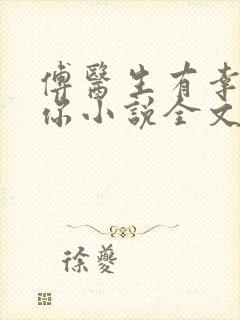 傅醫生有幸
你小說全文
徐夔